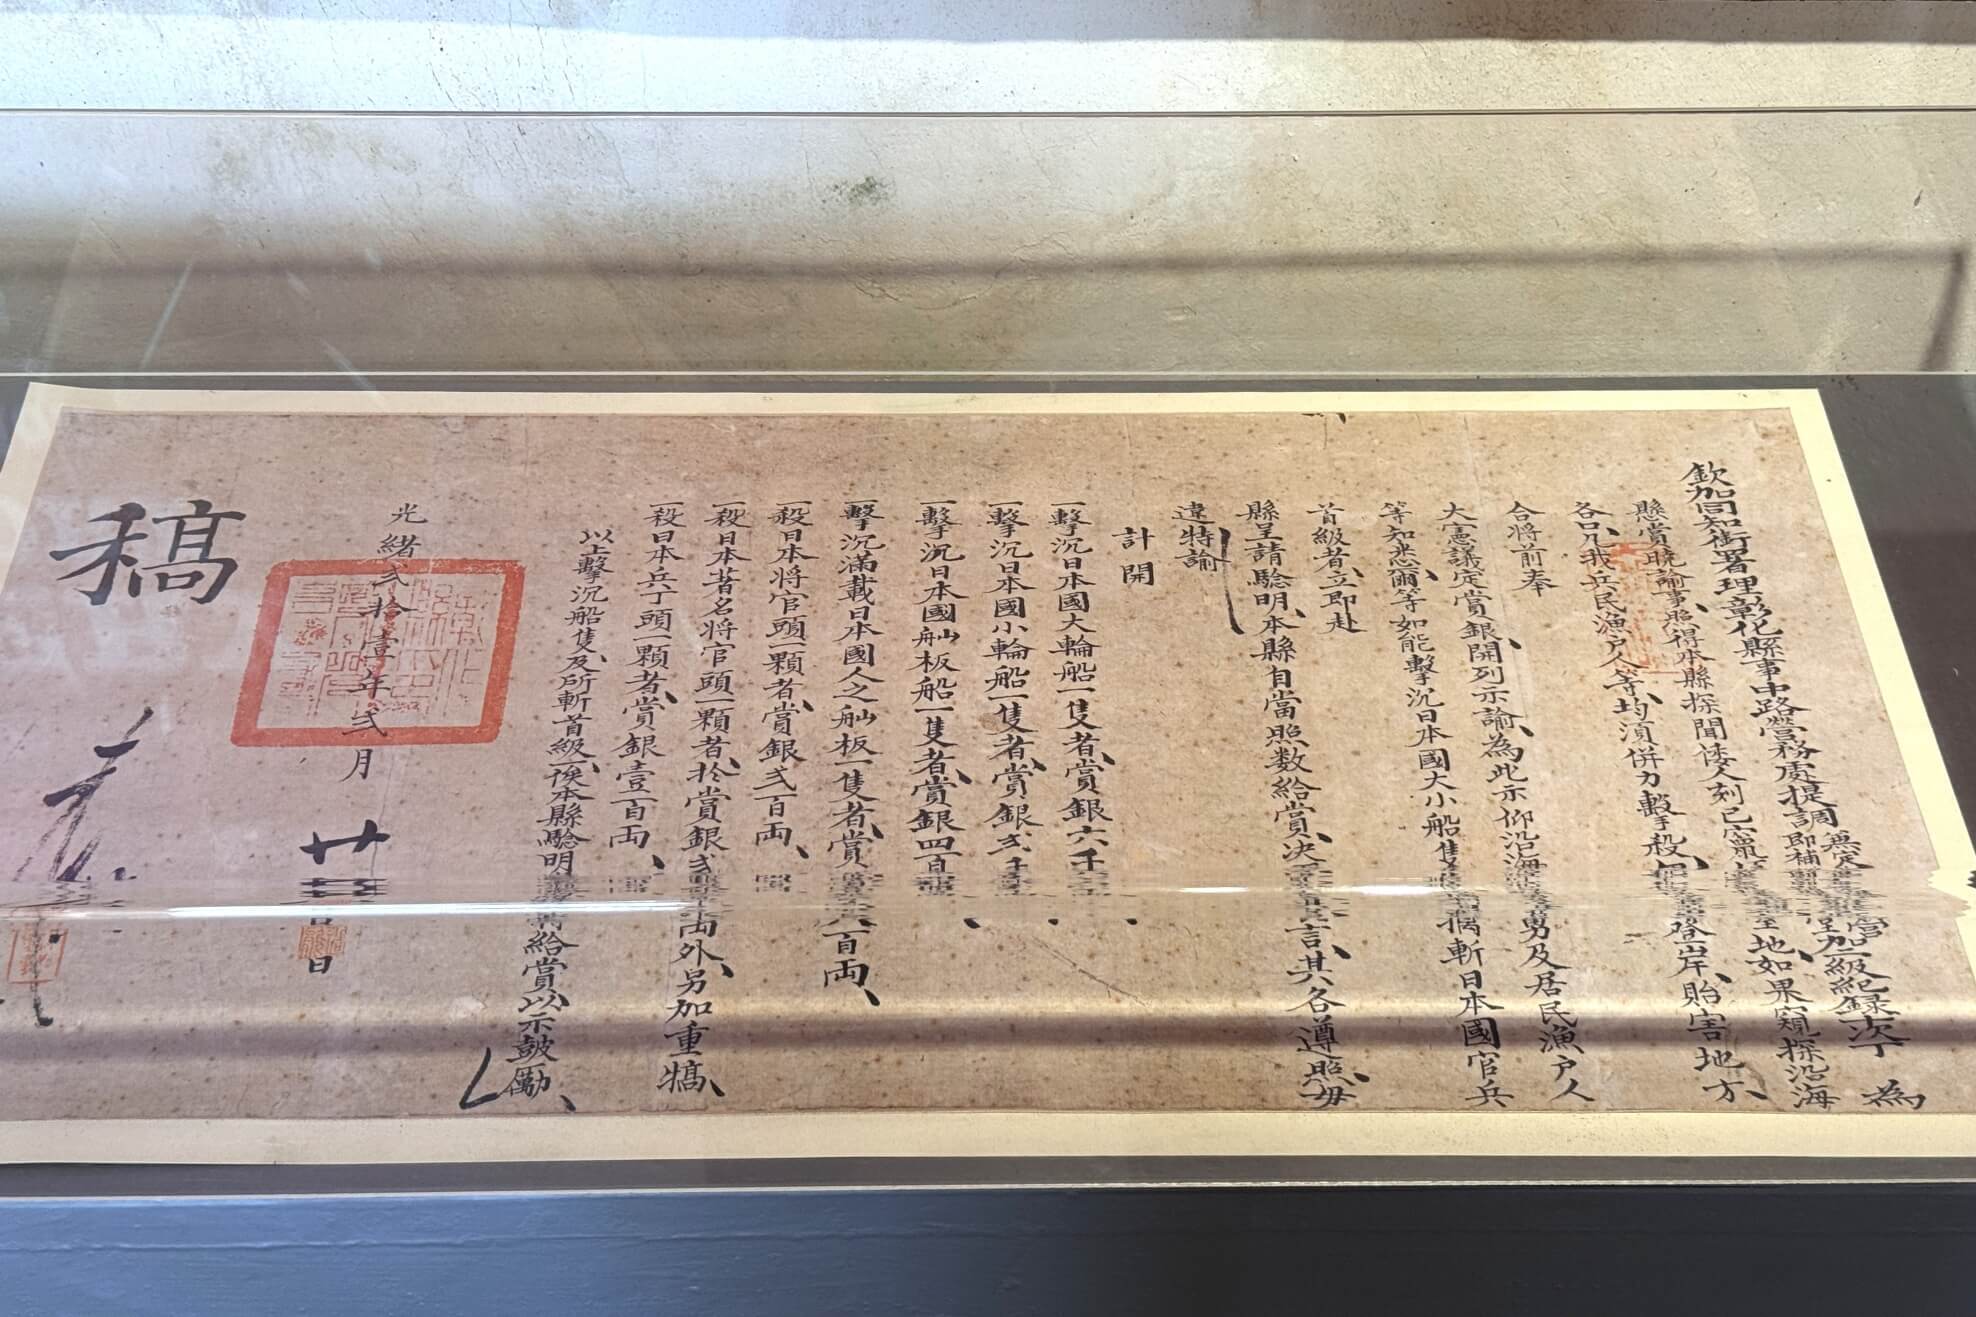 欽加同知銜署理彰化縣事中路營務處提調即補縣加一級紀錄次丁 為
懸賞曉諭事、照得本縣探聞倭人刻已至地、如果窺探沿海
各口、我兵民漁戶人等、均須併力擊殺、登岸、貽害地方、
合將前奉
大憲議定賞銀、開列示諭、為此示仰沿海勇及居民漁戶人
等知悉、爾等如能擊沉日本國大小船隻斬日本國官兵
首級者、立即赴
縣呈請驗明、本縣自當照数給賞、決言、其各遵照毋
違特諭
計開
一擊沉日本國大輪船一隻者、賞銀六千、
一擊沉日本國小輪船一隻者、賞銀弍千、
一擊沉日本國舢板船一隻者、賞銀四百、
一擊沉滿載日本國人之舢板一隻者、賞八百両、
一殺日本将官頭一顆者、賞銀弍百両、
一殺日本著名将官頭一顆者、於賞銀弍両外、另加重犒、
一殺日本兵丁頭一顆者、賞銀壹百両、
以上擊沉船隻、及所斬首級、一俟本縣驗明給賞、以示鼓勵、
光緒弍拾壹年弍月廿日
稿